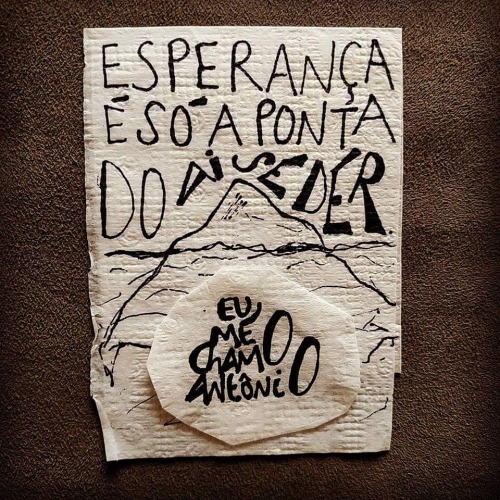 ESPERANÇA
É SÓ A PONTA
DO DI SE DER
EU
ME
CHAMO
ANTÔNIO